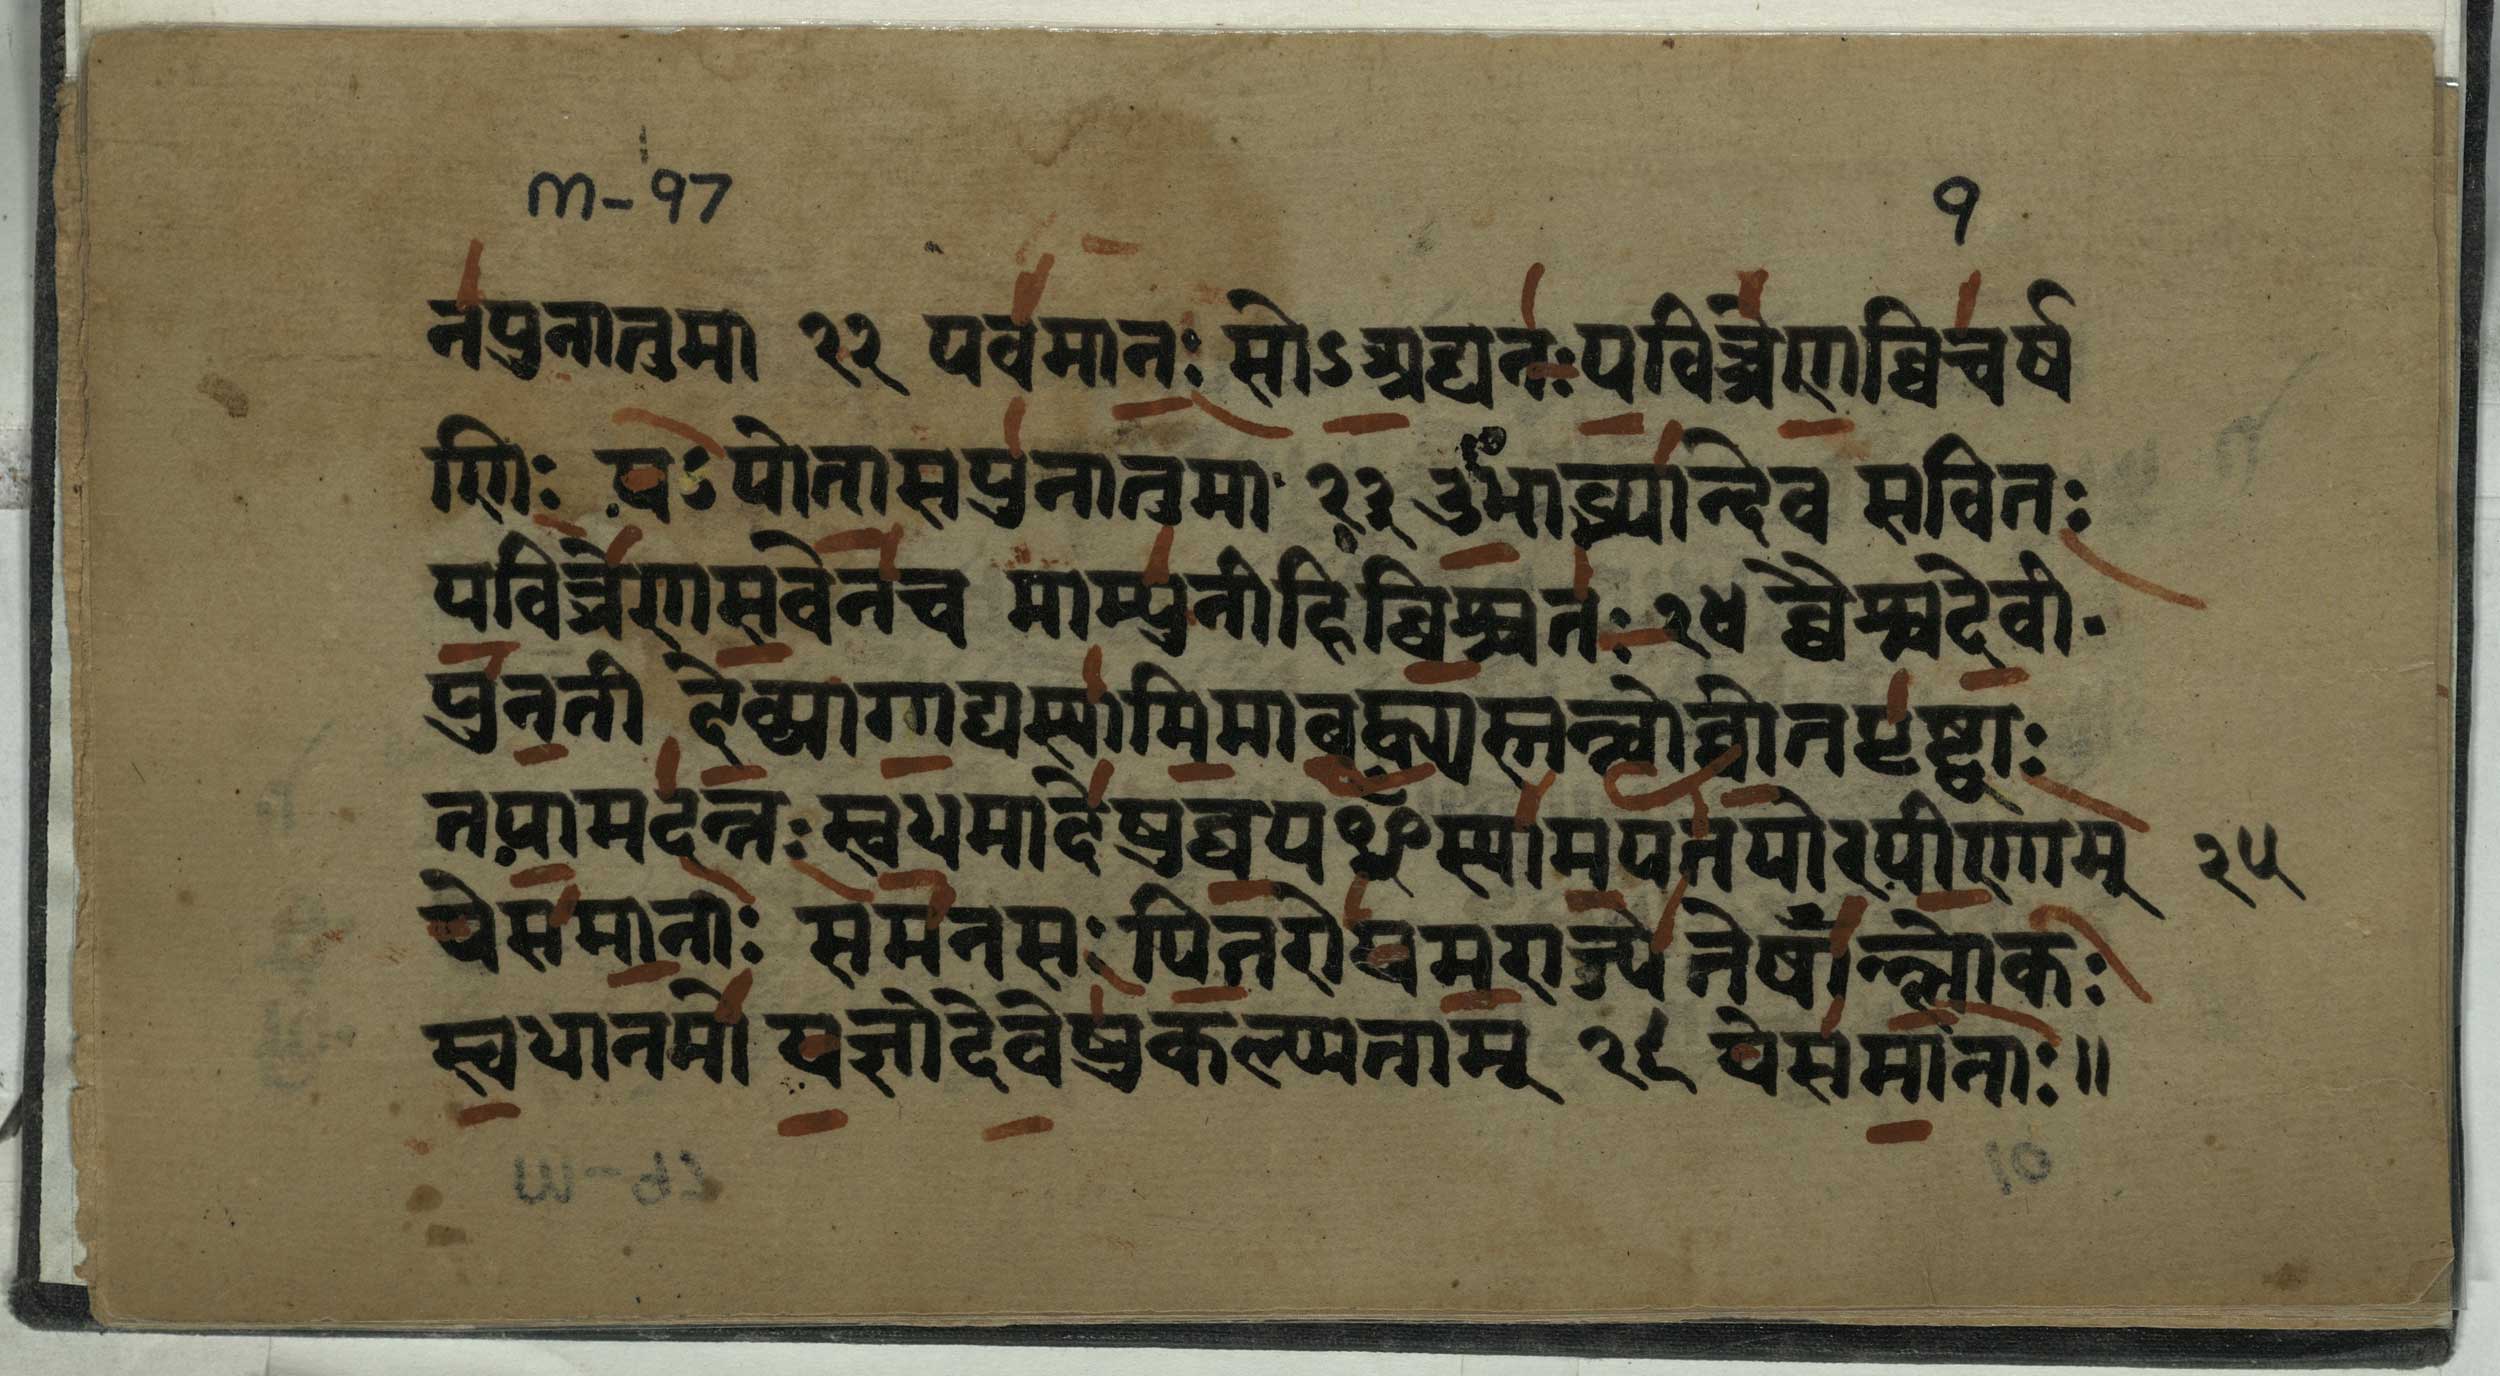 m-97 १
नपुनातुमा २२ पवमानः सोऽअद्यनःपवित्रेणव्विचर्ष
णिः यऽपोतासपुनातुमा २३ उभाब्भ्यान्देव सवितः
पवित्रेणसवेनच माम्पुनीहिव्विश्वतः २४ व्वैश्वदेवी
पुनती देव्यागाद्यस्यामिमाबह्व्यस्तन्न्वोव्वीतपृष्ठाः
तयामदन्तः स्वधमादेषुव्वयᳪस्यामपतयोरयीणाम् २५
येसमानाः समनसः पितरोयमराज्ये तेषाँल्लोकः
स्वधानमो यज्ञोदेवेषुकल्प्पताम् २६ येसमानाः॥